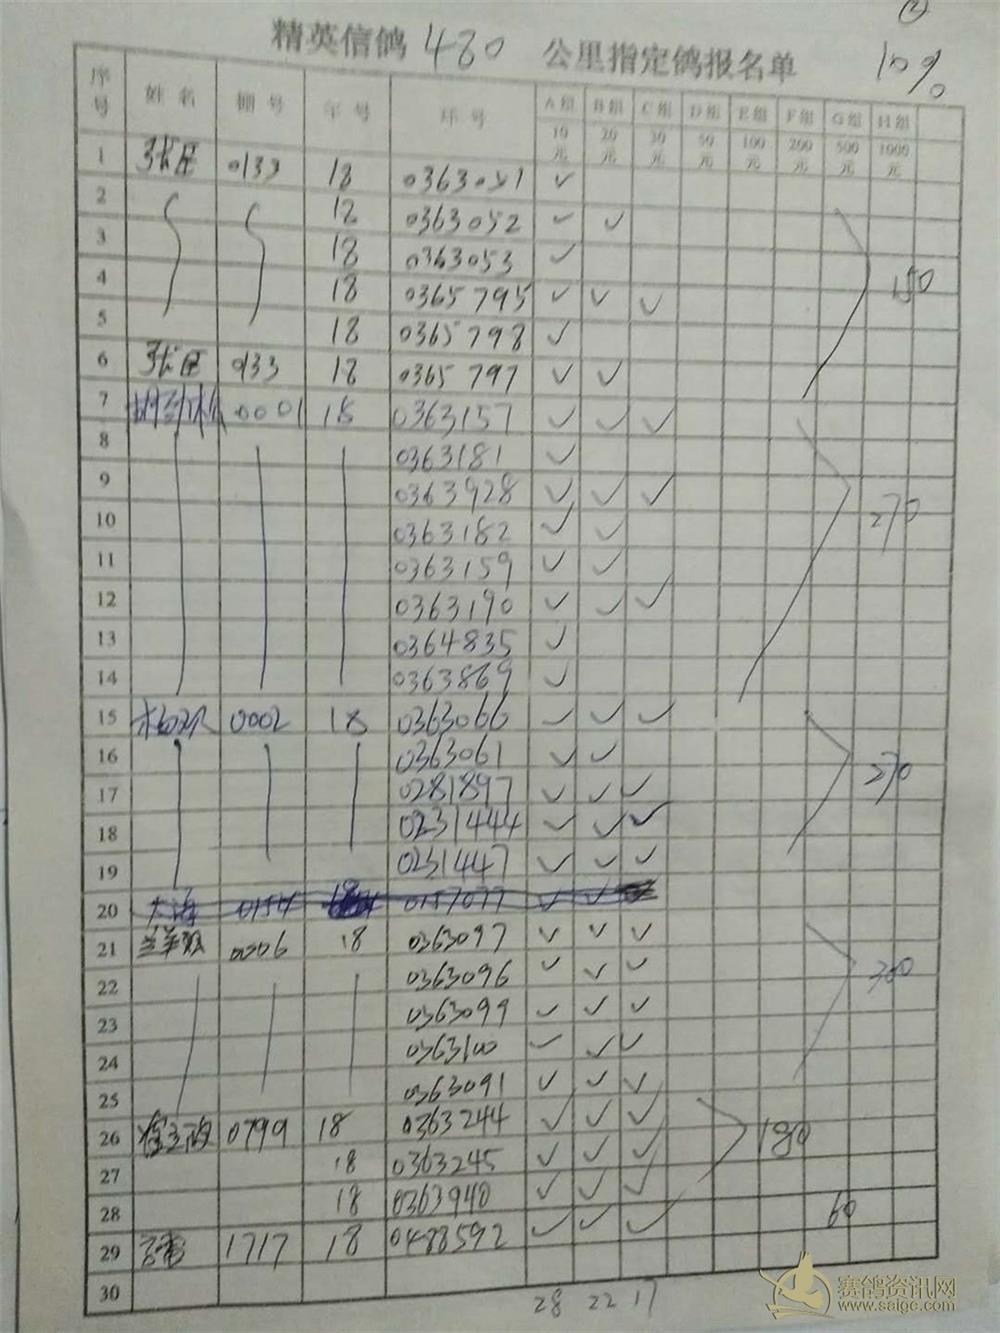 ②
精英信鸽480公里指定鸽报名单 10%
序号 姓名 棚号 年号 环号 A组 B组 C组 D组 E组 F组 G组 H组
10元 20元 30元 50元 100元 200元 500元 1000元
1 0133 18 0363051 ✓
2 18 0363052 ✓ ✓
3 18 0363053 ✓
4 18 0365795 ✓ ✓ ✓ 150
5 18 0365798 ✓
6 0133 18 0365797 ✓ ✓
7 0001 18 0363157 ✓ ✓ ✓
8 0363181 ✓
9 0363928 ✓ ✓ ✓
10 0363182 ✓ ✓ 270
11 0363159 ✓ ✓
12 0363190 ✓ ✓ ✓
13 0364835 ✓
14 0363869 ✓
15 0002 18 0363066 ✓ ✓ ✓
16 0363061 ✓ ✓
17 0281897 ✓ ✓ ✓ 270
18 0231444 ✓ ✓ ✓
19 0231447 ✓ ✓ ✓
20 大海 0154 18 0157077 ✓ ✓
21 0006 18 0363097 ✓ ✓ ✓
22 0363096 ✓ ✓ ✓ 300
23 0363099 ✓ ✓ ✓
24 0363100 ✓ ✓ ✓
25 0363091 ✓ ✓ ✓
26 0799 18 0363244 ✓ ✓ ✓ 180
27 18 0363245 ✓ ✓ ✓
28 18 0363940 ✓ ✓ ✓
29 1717 18 0488592 ✓ ✓ ✓ 60
30
28 22 17
赛鸽资讯网
www.saigc.com